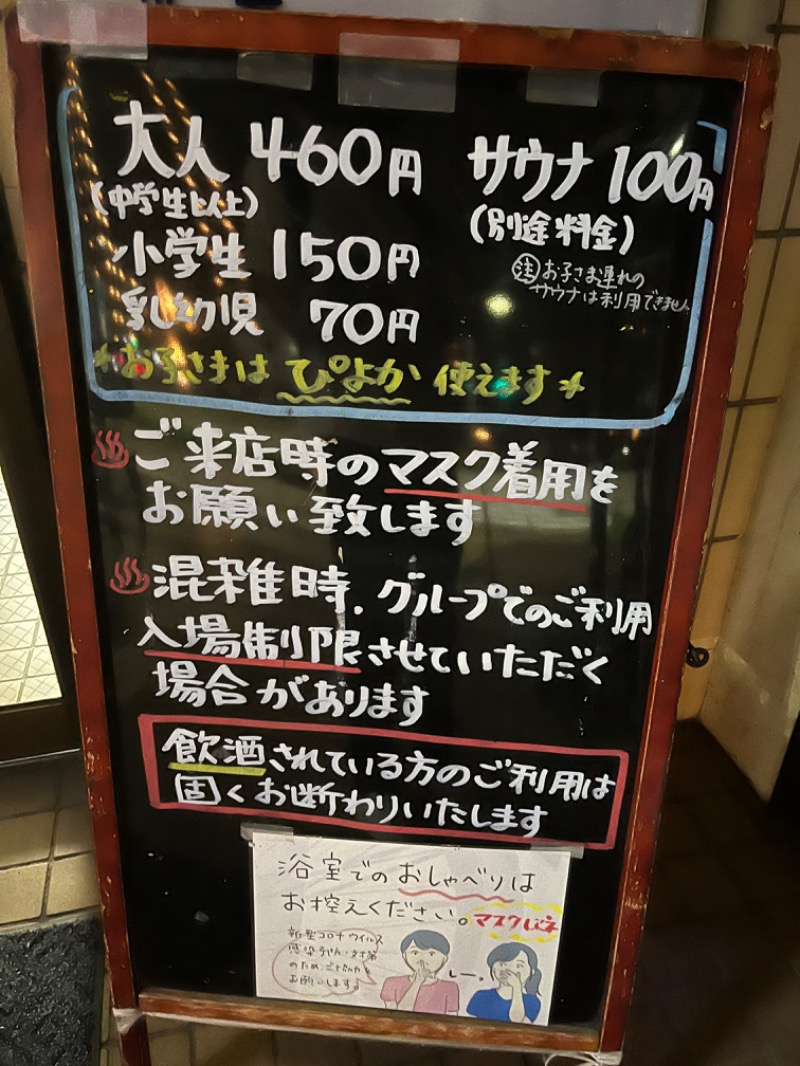 大人 460円
(中学生以上)
小学生 150円
乳幼児 70円
サウナ 100円
(別途料金)
注 お子さま連れの
サウナは利用できません
お子さまは ぴよか 使えます
♨ご来店時のマスク着用を
お願い致します
♨混雑時、グループでのご利用
入場制限させていただく
場合があります
飲酒されている方のご利用は
固くお断わりいたします
浴室でのおしゃべりは
お控えください。
新型コロナウイルス
お願いします。
しー。